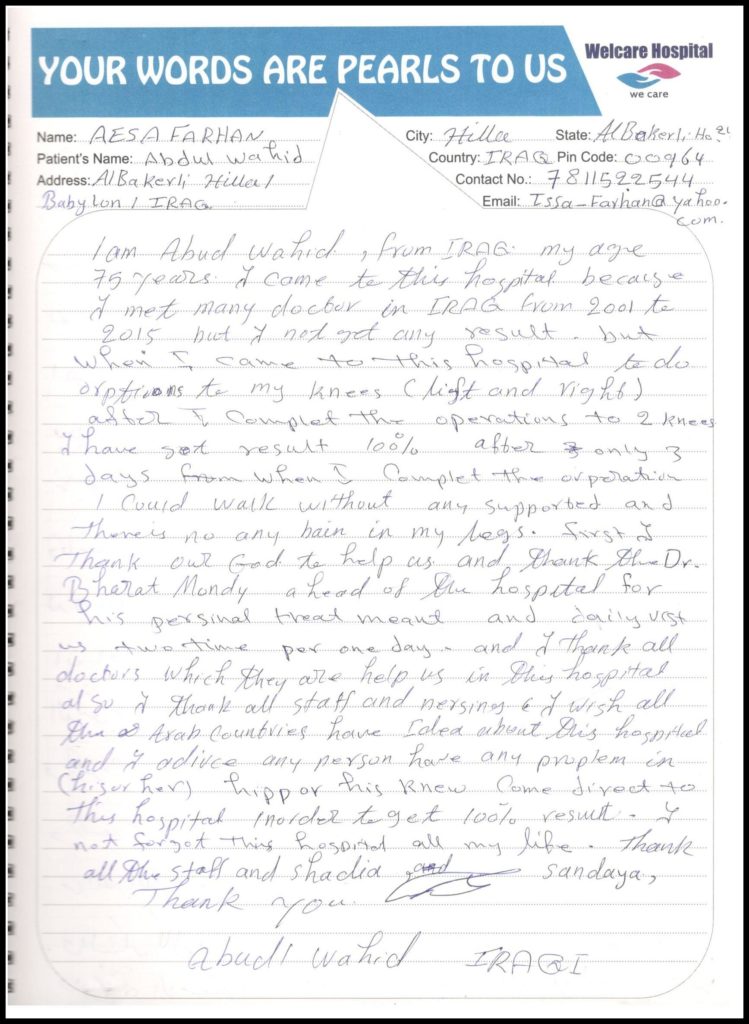 YOUR WORDS ARE PEARLS TO US
Welcare Hospital
we care
Name: AESA FARHAN City: Hilla State: AlBakerli Ho
Patient's Name: Abdul wahid Country: IRAQ Pin Code: 00964
Address: AlBakerli Hilla / Contact No.: 7811522544
Babylon / IRAQ Email: Issa-Farhan@yahoo.
com.
I am Abud wahid, from IRAQ. my age
75 years. I came to this hospital because
I met many doctor in IRAQ from 2001 to
2015 but I not get any result. but
when I came to this hospital to do
orptions to my knees (lift and right)
after I complet the operations to 2 knees
I have got result 100% after only 3
days from when I complet the orperation
I could walk without any supported and
there is no any bain in my legs. first I
Thank our God to help us and thank the Dr.
Bharat Mondy a head of the hospital for
his persinal treat meant and daily vist
us two time per one day. and I thank all
doctors which they are help us in this hospital
also I thank all staff and nersing & I wish all
the Arab countries have Idea about this hospital
and I adivce any person have any proplem in
(his or her) hipp or his knew come direct to
this hospital inorder to get 100% result. I
not forgot this hospital all my life. Thank
all the staff and shadia and sandaya,
Thank you.
Abudi wahid IRAQI